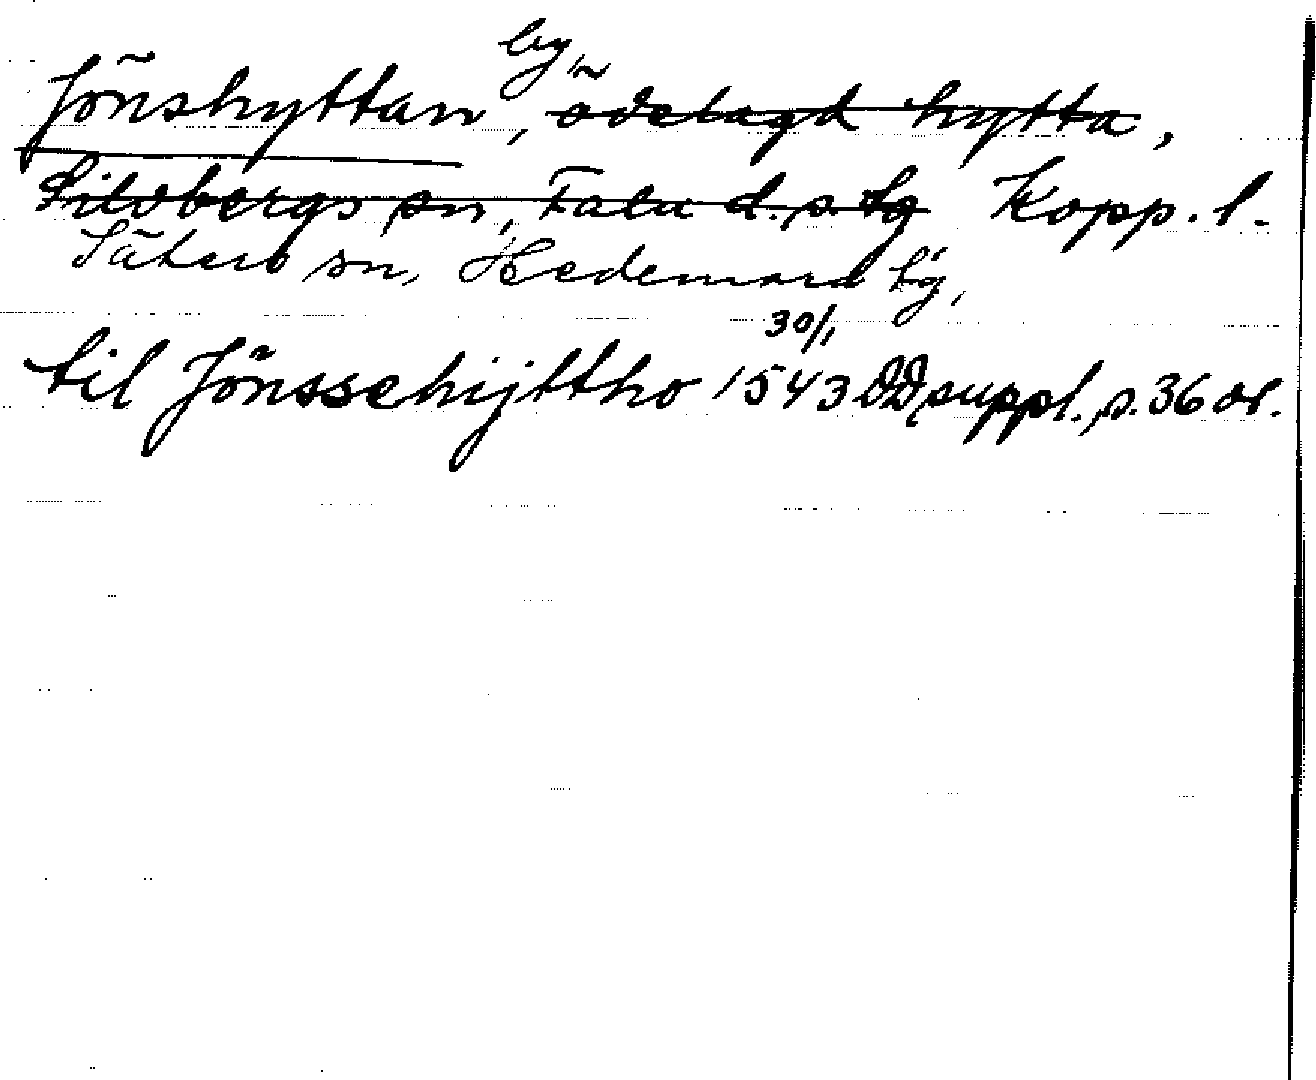 by,
Jönshyttan, ödelagd hytta,
Silvbergs sn, Falu d.s. lg Kopp. l.
Säters sn, Hedemora tg,
30/1
til Jönssehijttho 1543 DD suppl., s. 36 or.